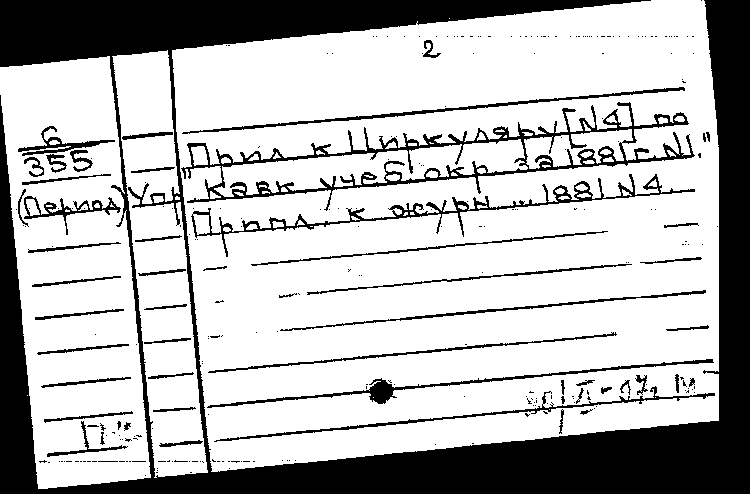 2
6
355
(Период) Упр
"Прил к Циркуляру [N4] по
кавк учеб. окр. за 1881 г. N1."
Прилл. к журн ... 1881 N 4.
30/II-07, М